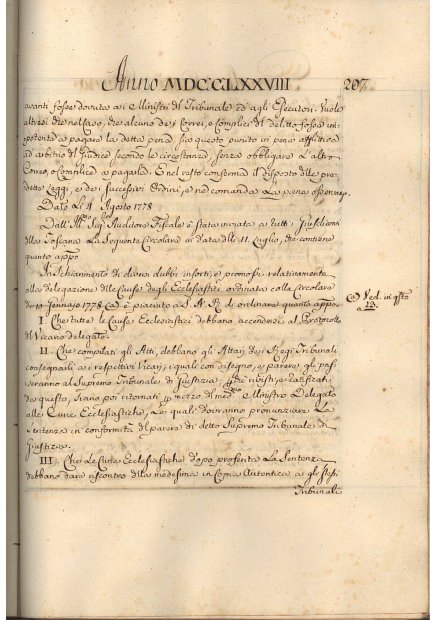 Anno MDCCLXXVIII 207
avanti fosse dovuta ai Ministri dl Tribunale ed agli Esecutori. Vuole
altresì che nel caso, che alcuno dei Correi, e Complici dl delitto fosse im-
potente a pagare la detta pena sia questo punito in pena afflittiva
ad arbitrio dl Giudice secondo le circostanze, senza obbligare l'altro
Correo, o Complice a pagarla. E nel resto conferma il disposto dlle pre-
dette Leggi, e dei successivi Ordini, e ne comanda la piena osservanz.
Dato li 4 Agosto 1778
Dall' Sig. Auditore Fiscale è stata inviata a tutti i Giusdicenti
dlla Toscana la Seguente Circolare in data dlli 11 Luglio, che contiene
quanto appo
In schiarimento di diversi dubbi insorti, e promossi relativamente
alla delegazione dlle Cause degli Ecclesiastici ordinata colla Circolare
de 10 Gennaio 1778 (a) è piaciuto a S. A. R. di ordinare quanto appo
(a) Ved. in qsto
a 13.
I. Che tutte le Cause Ecclesiastiche debbano accendersi al Protocollo
dl Vicario delegato.
II. Che compilati gli Atti, debbano gli Attarj dei Regj Tribunali
consegnarli ai respettivi Vicarj, i quali con disegno, e parere gli pas-
seranno al Supremo Tribunale di Giustizia, che rivisti, e
da questo, siano poi ritornati mezzo di med. Ministro Delegato
alle Curie Ecclesiastiche, le quali dovranno pronunziare la
Sentenza in conformità dl parere di detto Supremo Tribunale di
Giustizia.
III. Che le Curie Ecclesiastiche dopo proferita la Sentenza
debbano dare riscontro dlla medesima in Copia Autentica a gli stessi
Tribunali